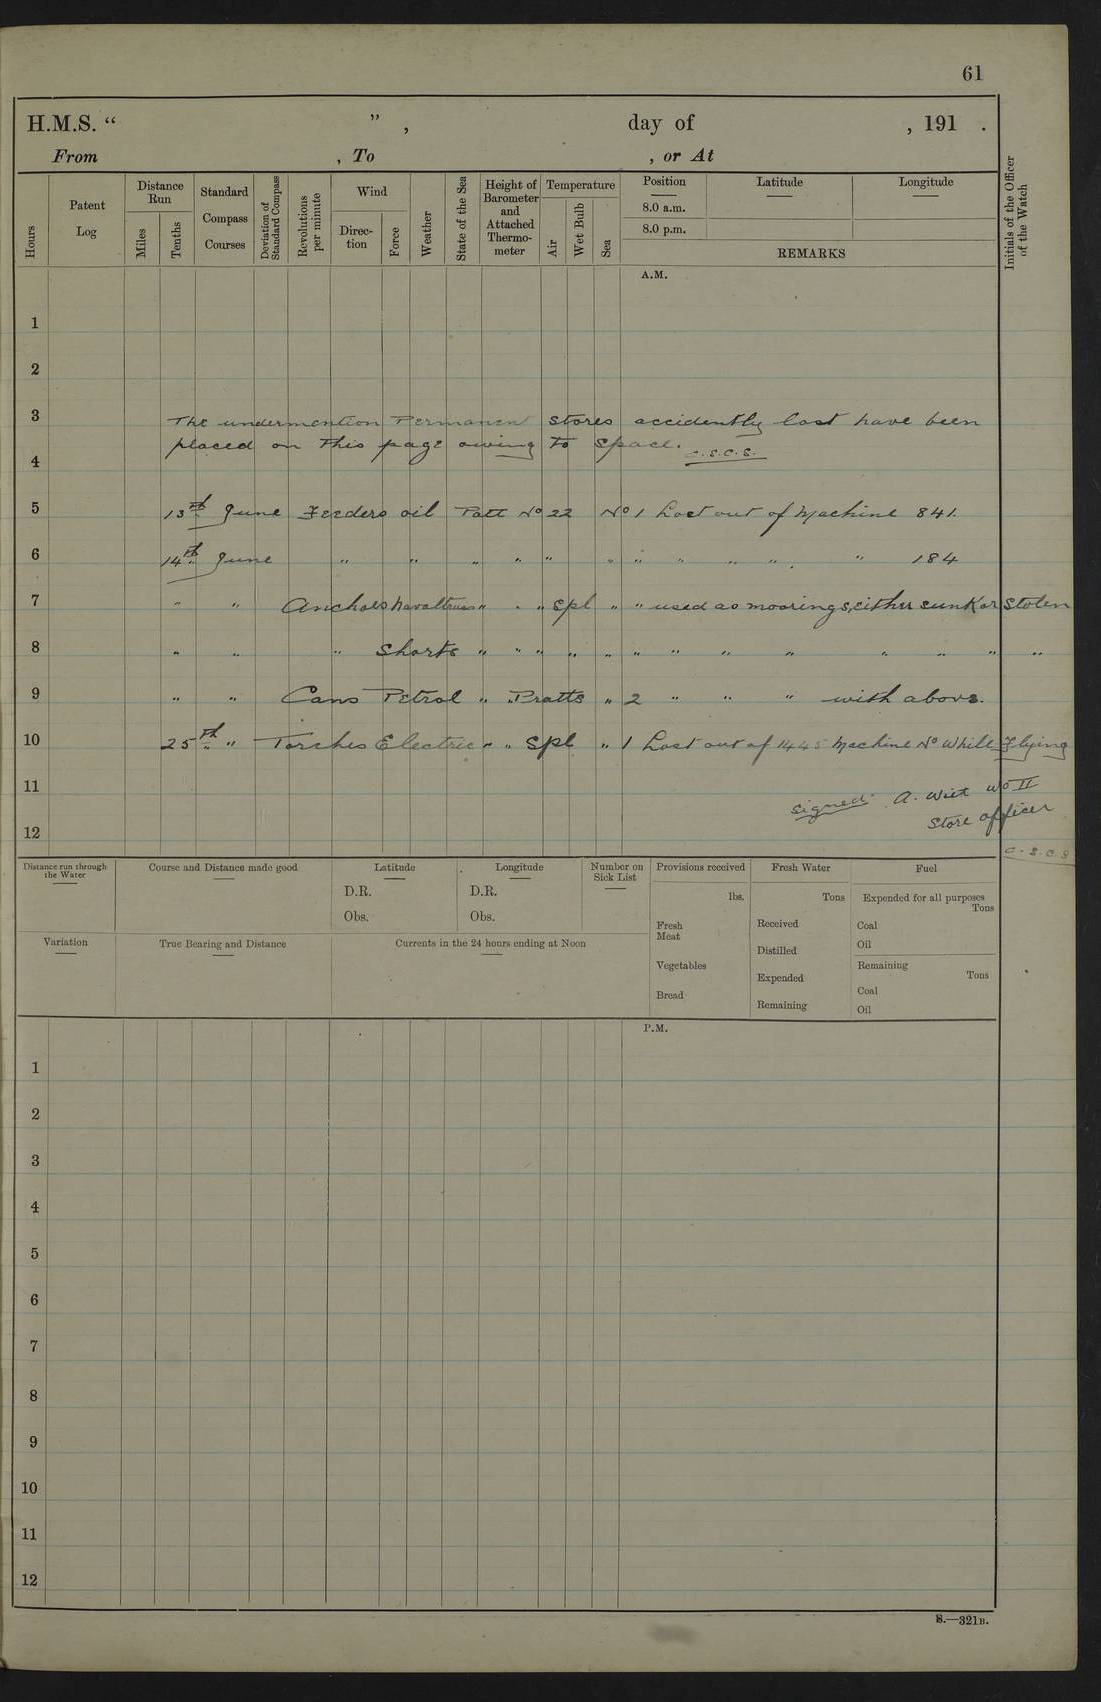 61
H.M.S. “ ” , day of , 191 .
From , To , or At
Hours
Patent Log
Distance Run
Miles
Tenths
Standard Compass Courses
Deviation of Standard Compass
Revolutions per minute
Wind
Direc-tion
Force
Weather
State of the Sea
Height of Barometer and Attached Thermo-meter
Temperature
Air
Wet Bulb
Sea
Position
8.0 a.m.
8.0 p.m.
Latitude
Longitude
REMARKS
Initials of the Officer of the Watch
A.M.
1
2
3
The undermention Permanent stores accidently lost have been
placed on this page owing to space. C.S.C.S.
4
5 13th June Feeders oil Patt No 22 No 1 Lost out of Machine 841.
6 14th June " " " " " " " " " " " 184
7 " " " " " Spl " " used as moorings, either sunk or stolen
8 " " " Shorts " " " " " " " " " " " " "
9 " " Cans Petrol " " Pratts " 2 " " " with above.
10 25th " Torches Electric " " Spl " 1 Lost out of 1445 Machine No While Flying
11
Signed. A. WO II
Store officer
12
C.S.C.S
Distance run through the Water
Course and Distance made good
Latitude
D.R.
Obs.
Longitude
D.R.
Obs.
Number on Sick List
Provisions received
lbs.
Fresh Meat
Vegetables
Bread
Fresh Water
Tons
Received
Distilled
Expended
Remaining
Fuel
Expended for all purposes
Tons
Coal
Oil
Remaining
Tons
Coal
Oil
Variation
True Bearing and Distance
Currents in the 24 hours ending at Noon
P.M.
1
2
3
4
5
6
7
8
9
10
11
12
S.—321B.